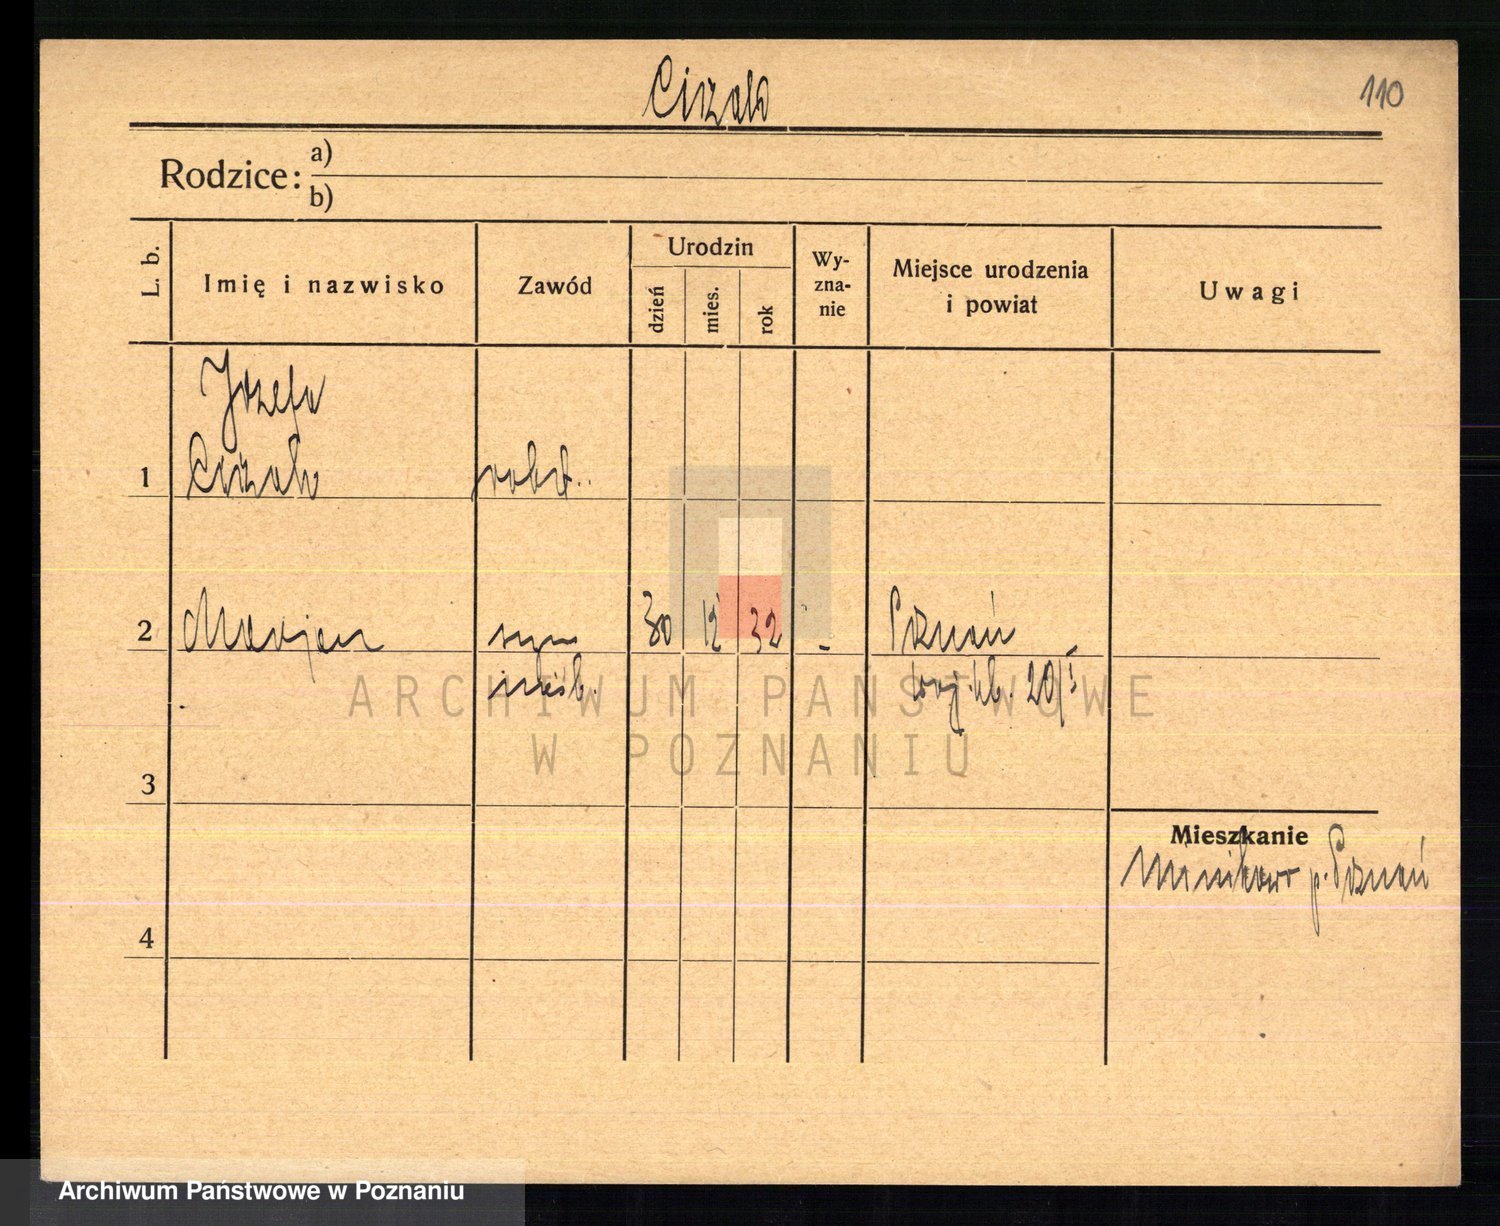 Cizak
110
Rodzice: a)
b)
L. b.
Imię i nazwisko
Zawód
Urodzin
dzień
mies.
rok
Wy-
zna-
nie
Miejsce urodzenia
i powiat
Uwagi
Józefa
1 Cizak robot.
2 Marjan syn 30 12 32 - Poznań
nieśl.
3
Mieszkanie
Minikowo p. Poznań
4
ARCHIWUM PAŃSTWOWE
W POZNANIU
Archiwum Państwowe w Poznaniu